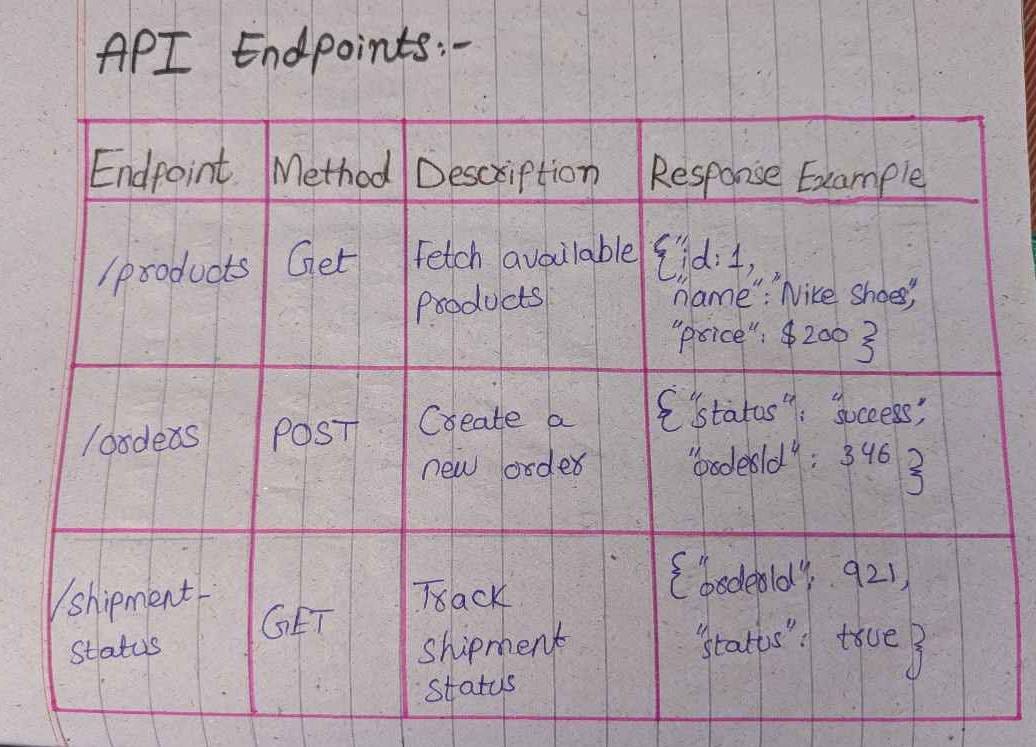 API Endpoints:-
Endpoint Method Description Response Example
/products Get Fetch available products {"id:1,
"name":"Nike Shoes",
"price": $200 }
/orders POST Create a new order {"status": "success",
"orderId": 346 }
/shipment-status GET Track shipment status {"orderId": 921,
"status": true }